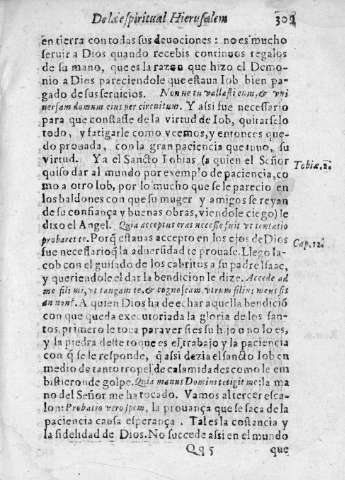 De la espiritual Hierusalem 309
en tierra con todas sus deuociones : no es mucho
seruir a Dios quando recebis continuos regalos
de su mano, que es la razon que hizo el Demo-
nio a Dios pareciendole que estaua Iob bien pa-
gado de sus seruicios. Nonne tu vallasti eum, & vni
uersam domum eius per circuitum. Y assi fue necessario
para que constasse de la virtud de Iob, quitarselo
todo, y fatigarle como vemos, y entonces que-
do prouada, con la gran paciencia que tuuo, su
virtud. Ya el Sancto Tobias (a quien el Señor
quiso dar al mundo por exemplo de paciencia, co
mo a otro Iob, por lo mucho que se le parecio en
los baldones con que su muger y amigos se reyan
de su confiança y buenas obras, viendole ciego) le
dixo el Angel. Quia acceptus eras necesse fuit vt tentatio
probaret te. Porq̃ estauas accepto en los ojos de Dios
fue necessario q̃ la aduersidad te prouasse. Llego Ia-
cob con el guisado de los cabritos a su padre Isaac,
y queriendole el dar la bendicion le dize. Accede ad
me fili mi, vt tangam te, & cognoscam vtrum filius meus sis
an non. A quien Dios ha de echar aquella bendició
con que queda executoriada la gloria de los san-
tos, primero le toca para ver si es su hijo o no lo es,
y la piedra deste toque es el trabajo y la paciencia
con q̃ se le responde, q̃ assi dezia el sancto Iob en
medio de tanto tropel de calamidades como le em
bistieron de golpe. Quia manus Domini tetigit me: la ma
no del Señor me ha tocado. Vamos al tercer esca-
lon: Probatio vero spem, la prouança que se saca de la
paciencia causa esperança. Tal es la constancia y
la fidelidad de Dios. No succede assi en el mundo
Qq 5 que
Tobiæ. 2.
Cap. 12.